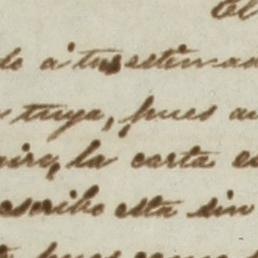 El
á tu estimad
tuya, pues a
la carta e
escribo esta sin